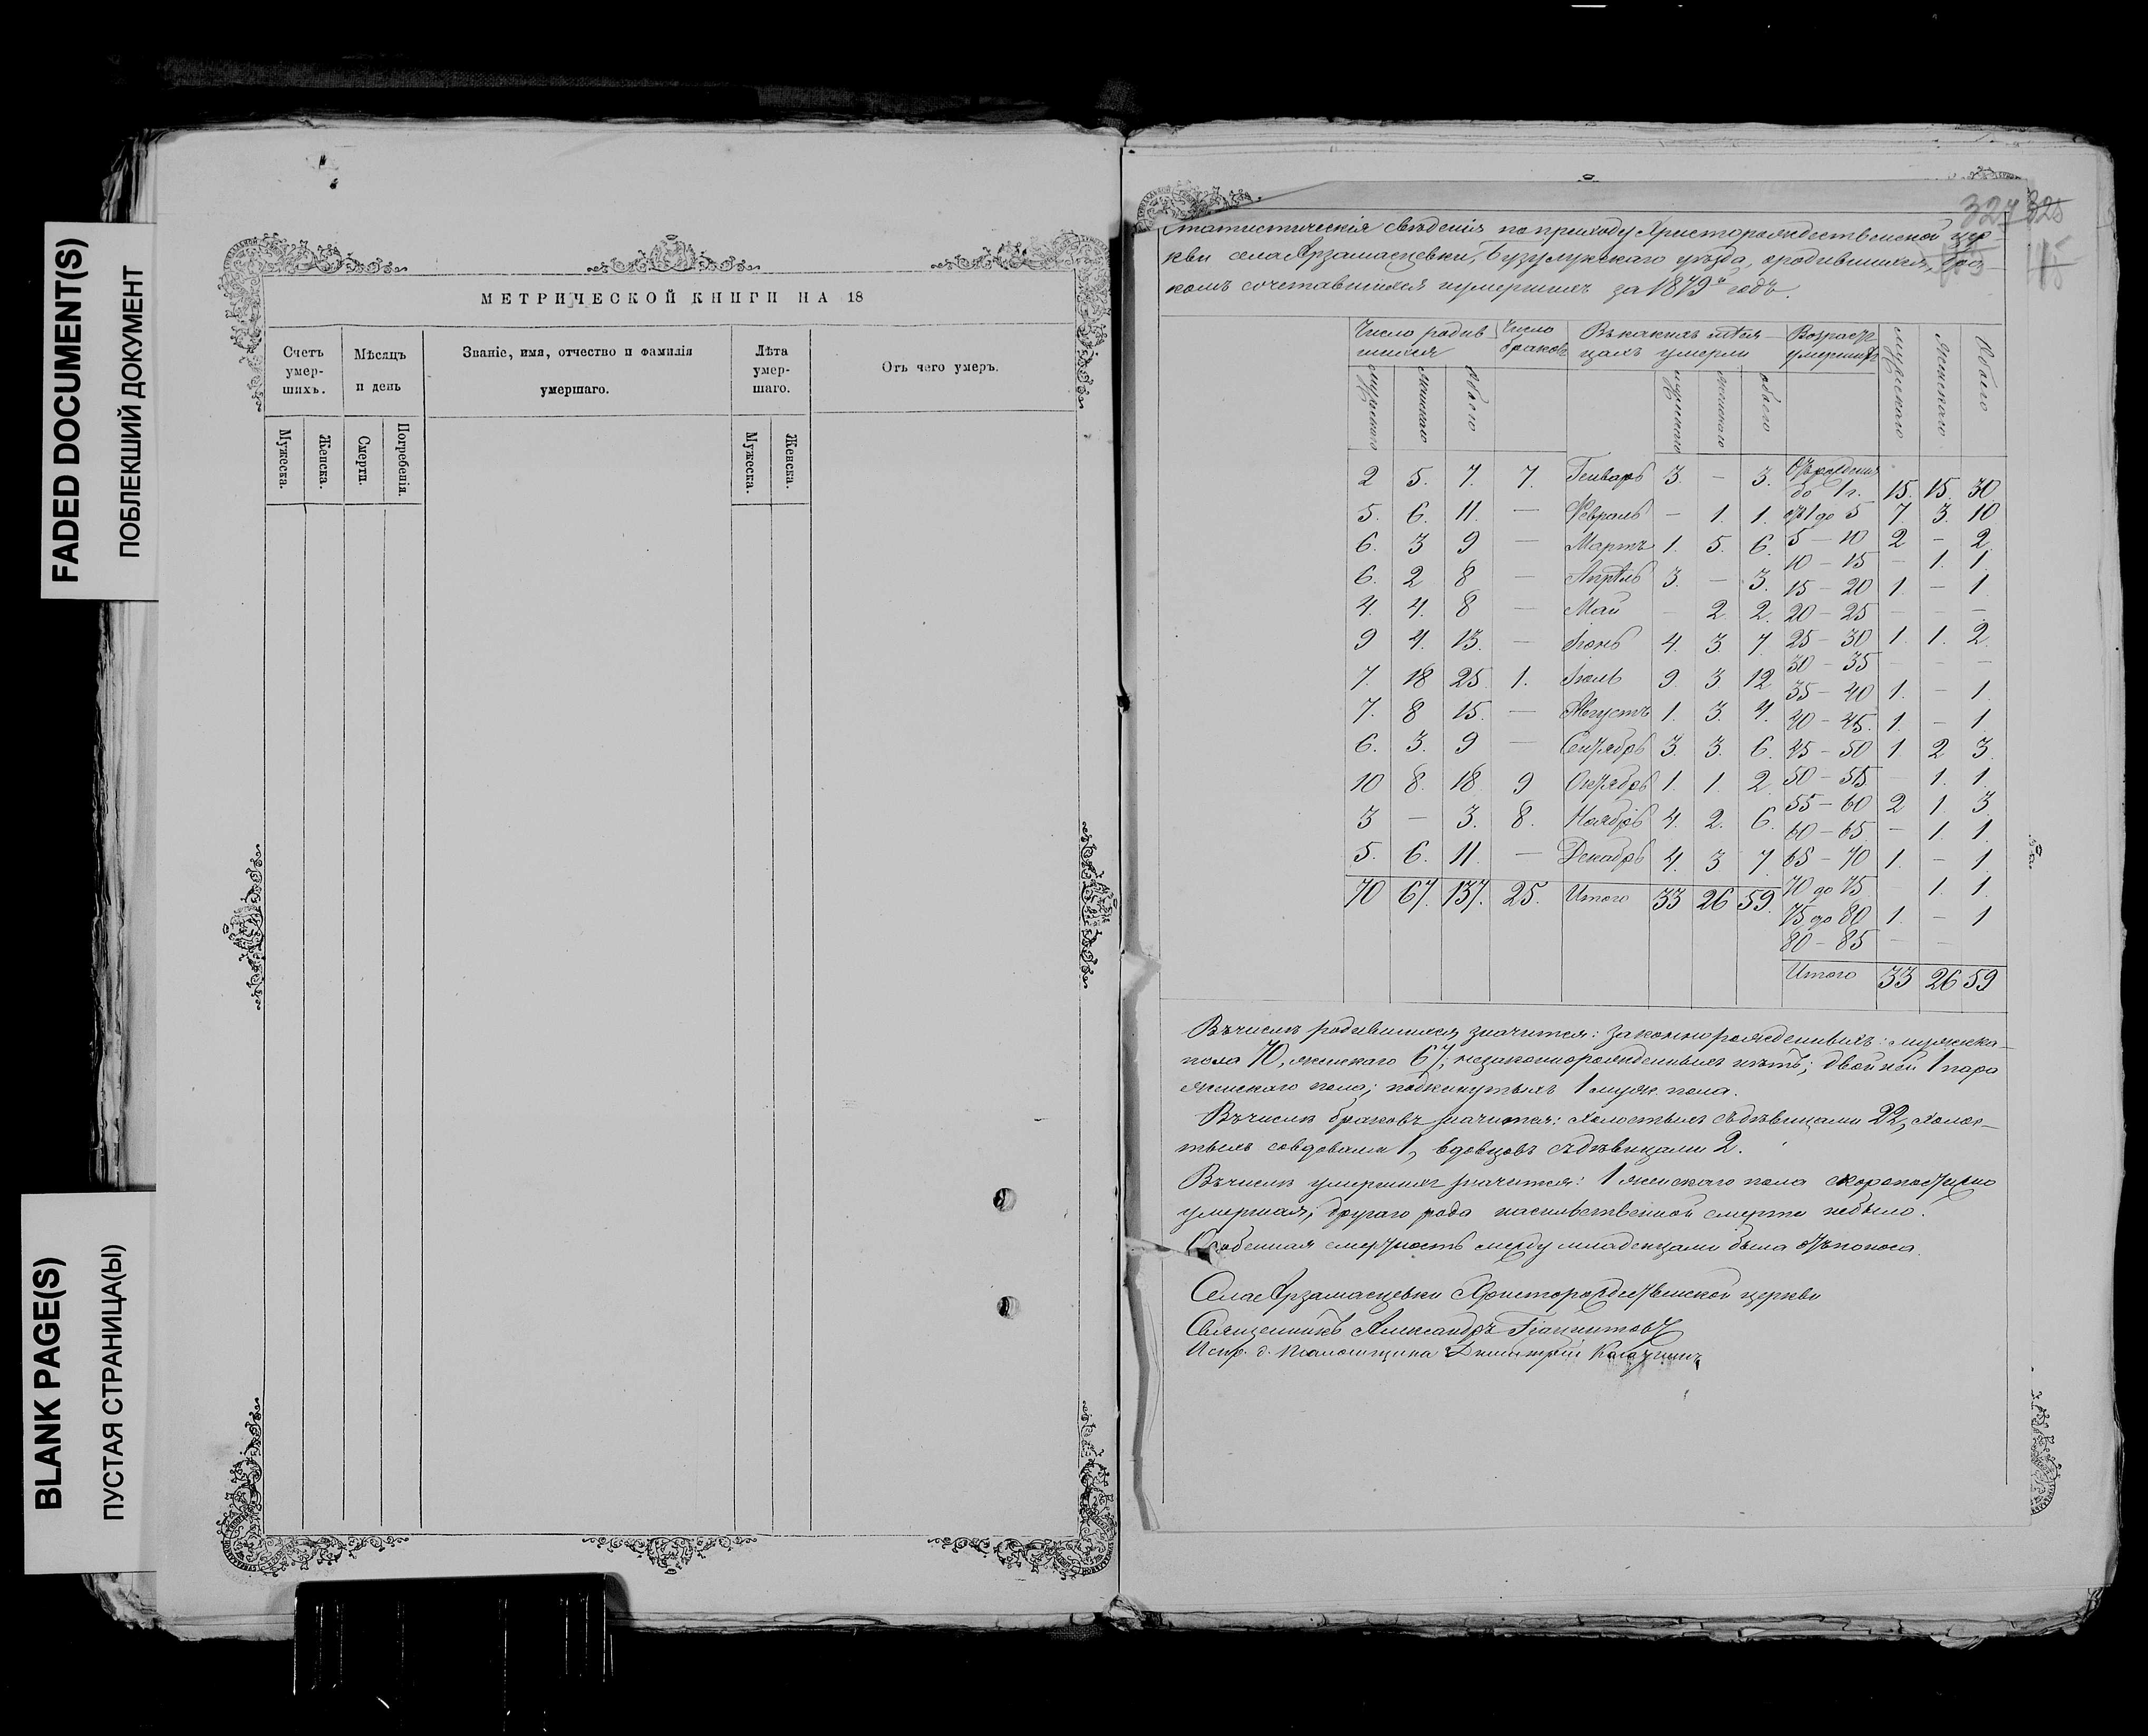 FADED DOCUMENT(S)
ПОБЛЕКШИЙ ДОКУМЕНТ
BLANK PAGE(S)
ПУСТАЯ СТРАНИЦА(Ы)
МЕТРИЧЕСКОЙ КНИГИ НА 18
Счетъ умер-шихъ. Мѣсяцъ и день Званіе, имя, отчество и фамилія умершаго. Лѣта умер-шаго. Отъ чего умеръ.
Мужеска. Женска. Смерти. Погребенія. Мужеска. Женска.
327 325
Статистическія свѣденія по приходу Христорождественской цер-
кви села Арзамасцевки, Бузулукскаго уѣзда, о родившихся, бра-
комъ сочетавшихся и умершихъ за 1879й годъ.
Число родив Число Въ какихъ мѣся- Возрастъ
шихся браковъ цахъ умерли умершихъ
мужескаго женскаго обоего мужескаго женскаго обоего мужескаго женскаго Обоего
2 5. 7. 7. Генварь 3. — 3. Отъ рожденія до 1 г. 15. 15. 30.
5. 6. 11. — Февраль — 1. 1. отъ 1 до 5 7. 3. 10
6. 3 9 — Мартъ 1. 5. 6. 5 — 10 2 — 2
10 — 15 — 1. 1.
6. 2 8 — Апрѣль 3. — 3. 15 — 20 1. — 1
4. 4. 8 — Май — 2 2. 20 — 25 — — —
9 4. 13. — Іюнь 4. 3. 7. 25 — 30 1. 1. 2.
30 — 35 — — —
7. 18 25. 1. Іюль 9. 3 12 35 — 40 1. — 1.
7. 8 15. — Августъ 1. 3. 4. 40 — 45. 1. — 1.
6. 3. 9 — Сентябрь 3. 3. 6. 45 — 50 1 2 3.
10 8. 18 9 Октябрь 1. 1. 2. 50 — 55 — 1. 1.
55 — 60 2 1. 3.
3 — 3. 8. Ноябрь 4. 2. 6. 60 — 65 — 1. 1.
5. 6. 11. — Декабрь 4. 3 7. 65 — 70 1. — 1.
70 67. 137. 25. Итого 33 26 59. 70 до 75 1. 1.
75 до 80 1. — 1
80 — 85 — —
Итого 33 26 59
Въ числѣ родившихся значится: законнорожденныхъ: мужска-
пола 70, женскаго 67; незаконнорожденныхъ нѣтъ; двойней 1 пара
женскаго пола; подкинутыхъ 1 муж. пола.
Въ числѣ браковъ значится: холостыхъ съ дѣвицами 22, холос-
тыхъ со вдовами 1, вдовцовъ съ дѣвицами 2.
Въ числѣ умершихъ значится: 1 женскаго пола скоропостижно
умершая; другаго рода насильственной смерти небыло.
Особенная смертность между младенцами была отъ поноса.
Села Арзамасцевки Христорождественской церкви
Священникъ Александръ Гіацинтовъ
Испр. д. Псаломщика Димитрій